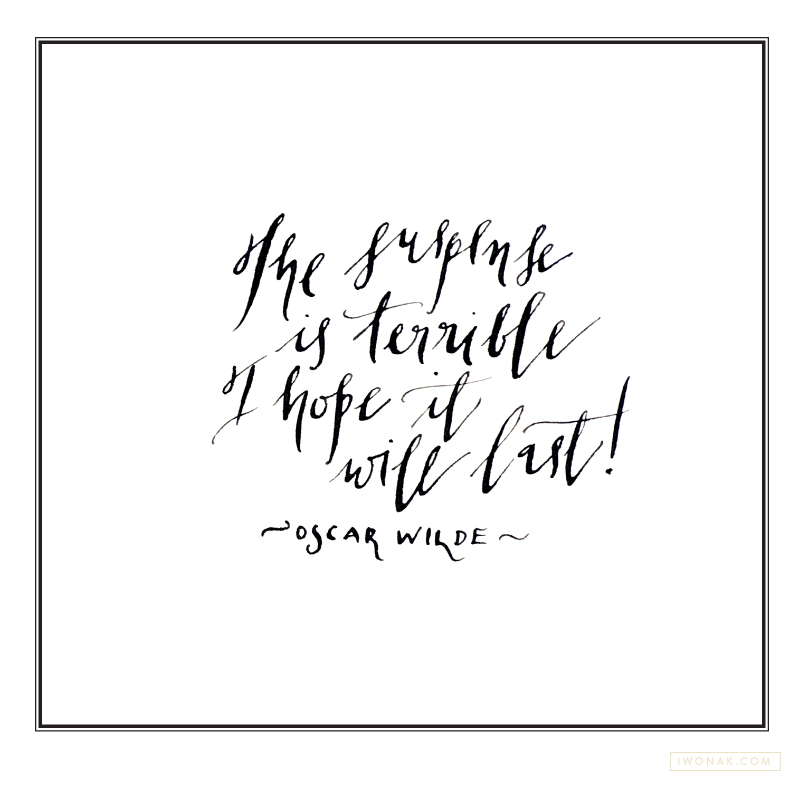 The suspense
is terrible
I hope it
will last!
~OSCAR WILDE~
IWONAK.COM